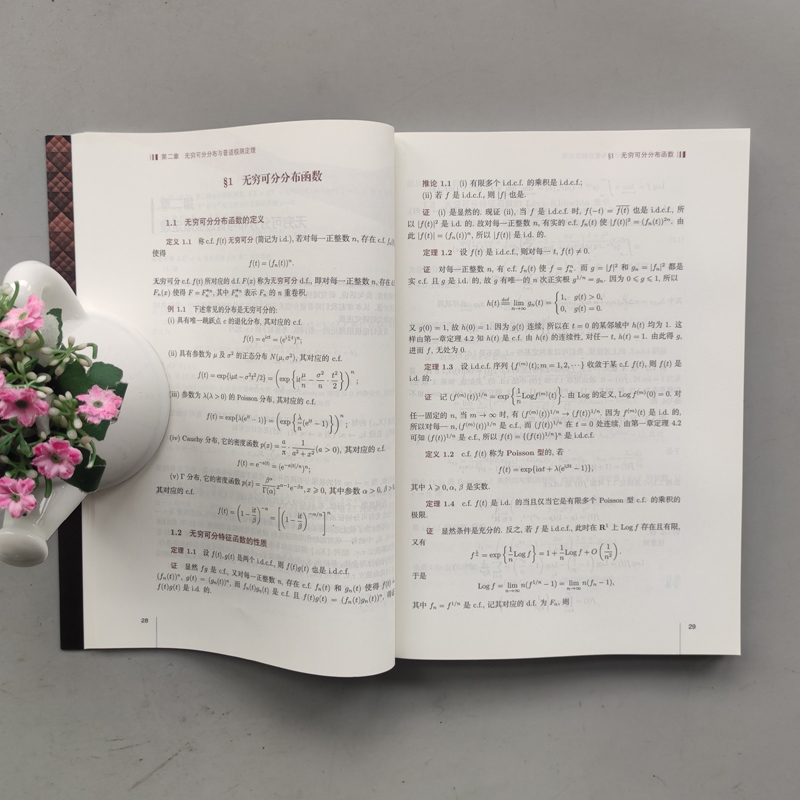 第二章 无穷可分分布与普适极限定理
§1 无穷可分分布函数
1.1 无穷可分分布函数的定义
定义 1.1 称 c.f. f(t) 无穷可分 (简记为 i.d.), 若对每一正整数 n, 存在 c.f. fₙ(t)
使得
f(t) = (fₙ(t))ⁿ.
无穷可分 c.f. f(t) 所对应的 d.f. F(x) 称为无穷可分 d.f., 即对每一正整数 n, 存在 d.f.
Fₙ(x) 使得 F = Fₙ*ⁿ, 其中 Fₙ*ⁿ 表示 Fₙ 的 n 重卷积.
例 1.1 下述常见的分布是无穷可分的:
(i) 具有唯一跳跃点 c 的退化分布, 其对应的 c.f.
(ii) 具有参数为 μ 及 σ² 的正态分布 N(μ, σ²), 其对应的 c.f.
f(t) = exp{iμt − σ²t²/2} = (exp{it μ/n − σ²/n · t²/2})ⁿ;
(iii) 参数为 λ(λ > 0) 的 Poisson 分布, 其对应的 c.f.
f(t) = exp{λ(eⁱᵗ − 1)} = (exp{λ/n (eⁱᵗ − 1)})ⁿ;
(iv) Cauchy 分布, 它的密度函数 p(x) = a/π · 1/(a² + x²) (a > 0), 其对应的 c.f.
f(t) = e^{−a|t|} = (e^{−a|t|/n})ⁿ;
(v) Γ 分布, 它的密度函数 p(x) = β^α/Γ(α) x^{α−1}e^{−βx}, x ⩾ 0, 其中参数 α > 0, β > 0
其对应的 c.f.
f(t) = (1 − it/β)^{−α} = [(1 − it/β)^{−α/n}]ⁿ
1.2 无穷可分特征函数的性质
定理 1.1 设 f(t), g(t) 是两个 i.d.c.f., 则 f(t)g(t) 也是 i.d.c.f.
证 显然 fg 是 c.f., 又对每一正整数 n, 存在 c.f. fₙ(t) 和 gₙ(t) 使得 f(t) =
(fₙ(t))ⁿ, g(t) = (gₙ(t))ⁿ, 而 fₙ(t)gₙ(t) 是 c.f. 且 f(t)g(t) = (fₙ(t)gₙ(t))ⁿ,
f(t)g(t) 是 i.d. 的.
28
§1 无穷可分分布函数
推论 1.1 (i) 有限多个 i.d.c.f. 的乘积是 i.d.c.f.;
(ii) 若 f 是 i.d.c.f., 则 |f| 也是.
证 (i) 是显然的. 现证 (ii), 当 f 是 i.d.c.f. 时, f(−t) = f̅(̅t̅)̅ 也是 i.d.c.f., 所
以 |f(t)|² 是 i.d. 的. 故对每一正整数 n, 有实的 c.f. fₙ(t) 使 |f(t)|² = (fₙ(t))²ⁿ. 由
此 |f(t)| = (fₙ(t))ⁿ, 所以 |f(t)| 是 i.d. 的.
定理 1.2 设 f(t) 是 i.d.c.f., 则对每一 t, f(t) ≠ 0.
证 对每一正整数 n, 有 c.f. fₙ(t) 使 f = fₙⁿ. 而 g = |f|² 和 gₙ = |fₙ|² 都是
实 c.f. 且 g 是 i.d. 的, 故 g 有唯一的 n 次正实根 g^{1/n} = gₙ. 因为 0 ⩽ g ⩽ 1, 所以
h(t) def= lim_{n→∞} gₙ(t) = { 1, g(t) > 0, 0, g(t) = 0.
又 g(0) = 1, 故 h(0) = 1. 因为 g(t) 连续, 所以在 t = 0 的某邻域中 h(t) 均为 1. 这
样由第一章定理 4.2 知 h(t) 是 c.f. 由 h(t) 的连续性, 对任一 t, h(t) = 1. 由此得 g,
进而 f, 无处为 0.
定理 1.3 设 i.d.c.f. 序列 {f⁽ᵐ⁾(t); m = 1, 2, ···} 收敛于某 c.f. f(t), 则 f(t) 是
i.d. 的.
证 记 (f⁽ᵐ⁾(t))^{1/n} = exp{1/n Log f⁽ᵐ⁾(t)}. 由 Log 的定义, Log f⁽ᵐ⁾(0) = 0. 对
任一固定的 n, 当 m → ∞ 时, 有 (f⁽ᵐ⁾(t))^{1/n} → (f(t))^{1/n}. 因为 f⁽ᵐ⁾(t) 是 i.d. 的,
所以对每一 n, (f⁽ᵐ⁾(t))^{1/n} 是 c.f., 而 (f(t))^{1/n} 在 t = 0 处连续, 由第一章定理 4.2
可知 (f(t))^{1/n} 是 c.f., 所以 f(t) = {(f(t))^{1/n}}ⁿ 是 i.d.c.f.
定义 1.2 c.f. f(t) 称为 Poisson 型的, 若
f(t) = exp{iαt + λ(e^{iβt} − 1)},
其中 λ ⩾ 0, α, β 是实数.
定理 1.4 c.f. f(t) 是 i.d. 的当且仅当它是有限多个 Poisson 型 c.f. 的乘积的
极限.
证 显然条件是充分的. 反之, 若 f 是 i.d.c.f., 此时在 R¹ 上 Log f 存在且有限,
又有
f^{1/n} = exp{1/n Log f} = 1 + 1/n Log f + O(1/n²).
于是
Log f = lim_{n→∞} n(f^{1/n} − 1) = lim_{n→∞} n(fₙ − 1),
其中 fₙ = f^{1/n} 是 c.f., 记其对应的 d.f. 为 Fₙ, 则
29